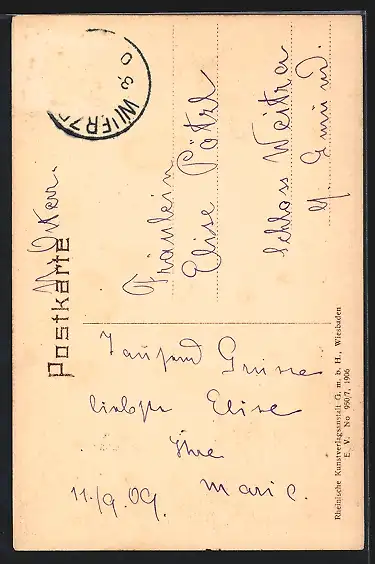 Postkarte
WIERZ
Fräulein
Elise Pötzl
Schloss Weitra
Gmünd.
Tausend Grüsse
liebste Elise
Ihre
Marie.
11./9.09.
Rheinische Kunstverlagsanstalt G. m. b. H., Wiesbaden
E. V. No 950/7, 1906